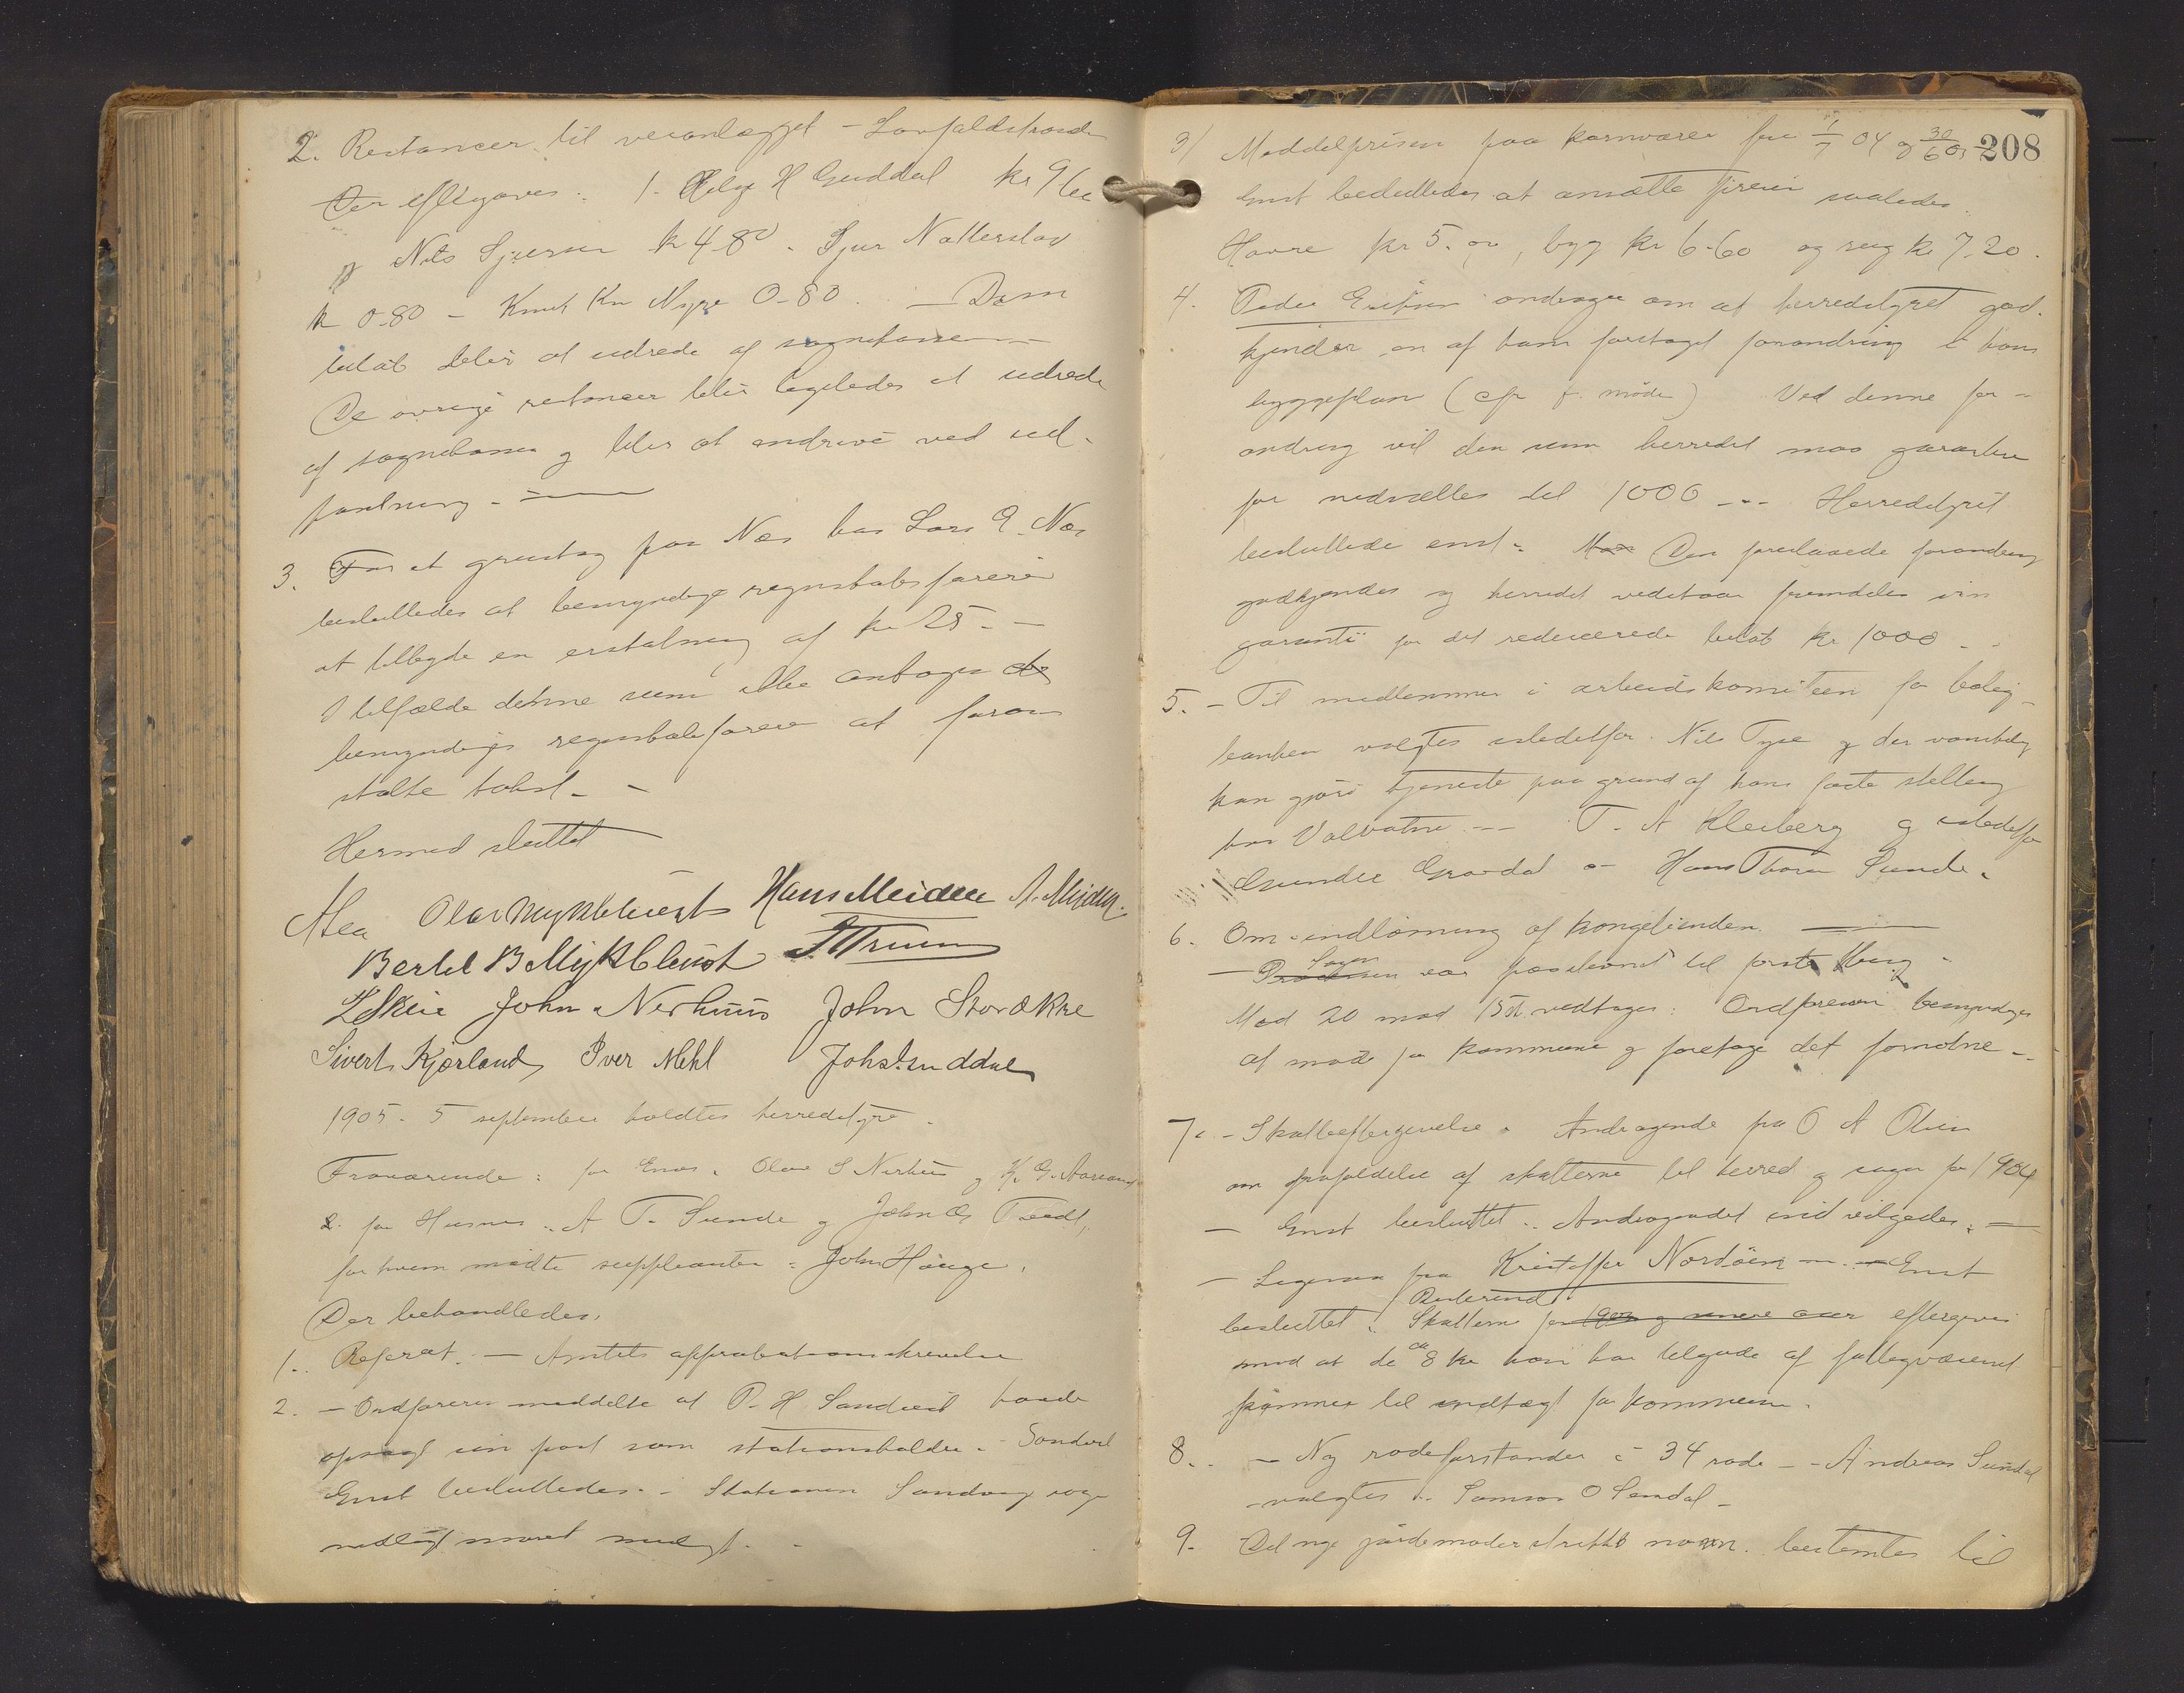 2. Restancer til veianlægget - Løvfaldstrand
Der eftergaves: 1. Helge H Guddal kr 9.60
og Nils Sjursen kr 4-80. Sjur Nattersta
kr 0.80 - Knut Kn Myre 0-80. - Dem
beløb blir at udrede af sognekassen
De øvrige restancer blir ligeledes at udrede
af sognekassen og blir at inddrive ved ud-
pantning.
3. For et grustag paa Næs hos Lars Næs
besluttedes at bemyndige regnskabsføreren
at tilbyde en erstatning af kr 25.-
I tilfælde denne sum ikke antages
bemyndiges regnskabsføreren at foran
stalte takst.
Hermed sluttet
Olai Myklebust Hans Meidell A. Meidell.
Bertel B Myklebust
Skeie John Nerhuus John Storøkre
Sivert Kjærland Iver Mehl Johs Guddal
1905. 5 september holdtes herredstyre.
Fraværende: for Enæs. Olav S Nerhus og K. G. Aarsand
2. for Husnes. A T. Sunde og John Tvedt,
for hvem mødte suppleanten: John Hauge.
Der behandledes.
1. Referat. - Amtets approbationsskrivelse
2. - Ordføreren meddelte at P. H Sandvik havde
opsagt sin post som stationsholder. - Sandvik
Enst besluttedes. - Stationen Sandvig søges
nedlagt snarest muligt.
208
3/ Middelprisen paa kornvarer fra 1/7 04 og 30/6 05
Enst besluttedes at ansætte prisen saaledes.
Havre kr 5.00, byg kr 6-60 og rug kr 7,20.
4. Peder Eriksen andrager om at herredstyret god-
kjender en af ham foretaget forandring i hans
byggeplan (cfr f. møde) Ved denne for-
andring vil den sum herredet maa garantere
for nedsættes til 1000 --- Herredstyret
besluttede enst: Den foreslaaede forandring
godkjendes og herredet vedstaar fremdeles sin
garanti for det reducerede beløb kr 1000.-
5. - Til medlemmer i arbeidskomiteen for bolig-
banken valgtes istedetfor Nils Tyse og der vanskelig
kan gjøre tjeneste paa grund af hans faste stilling
hos Valvatne --- T. A Kleiberg og istedetfor
Gravdal - Hans Thore Sunde.
6. Om indløsning af kongetienden.
- Sagen var positionet til første ting.
Med 20 mod 1 st vedtages: Ordføreren bemyndiges
at møde for kommunen og foretage det fornødne -
7. - Skatteeftergivelse. Andragende fra O A Olsen
om frafaldelse af skatterne til herred og sogn for 1904
- Enst besluttet: Andragendet indvilgedes. -
- Ligesaa fra Kristoffer Nordøen - Enst
besluttet: Skatterne for 1902 og senere aar eftergives
mod at de 8 kr han har tilgode af fattigvæsenet
kommer til indtægt for kommunen.
8. - Ny rodeforstander i 34 rode - Andreas Sundal
- valgtes. Samson O Sundal -
9. Det nye jordemoderdistrikt bestemtes til